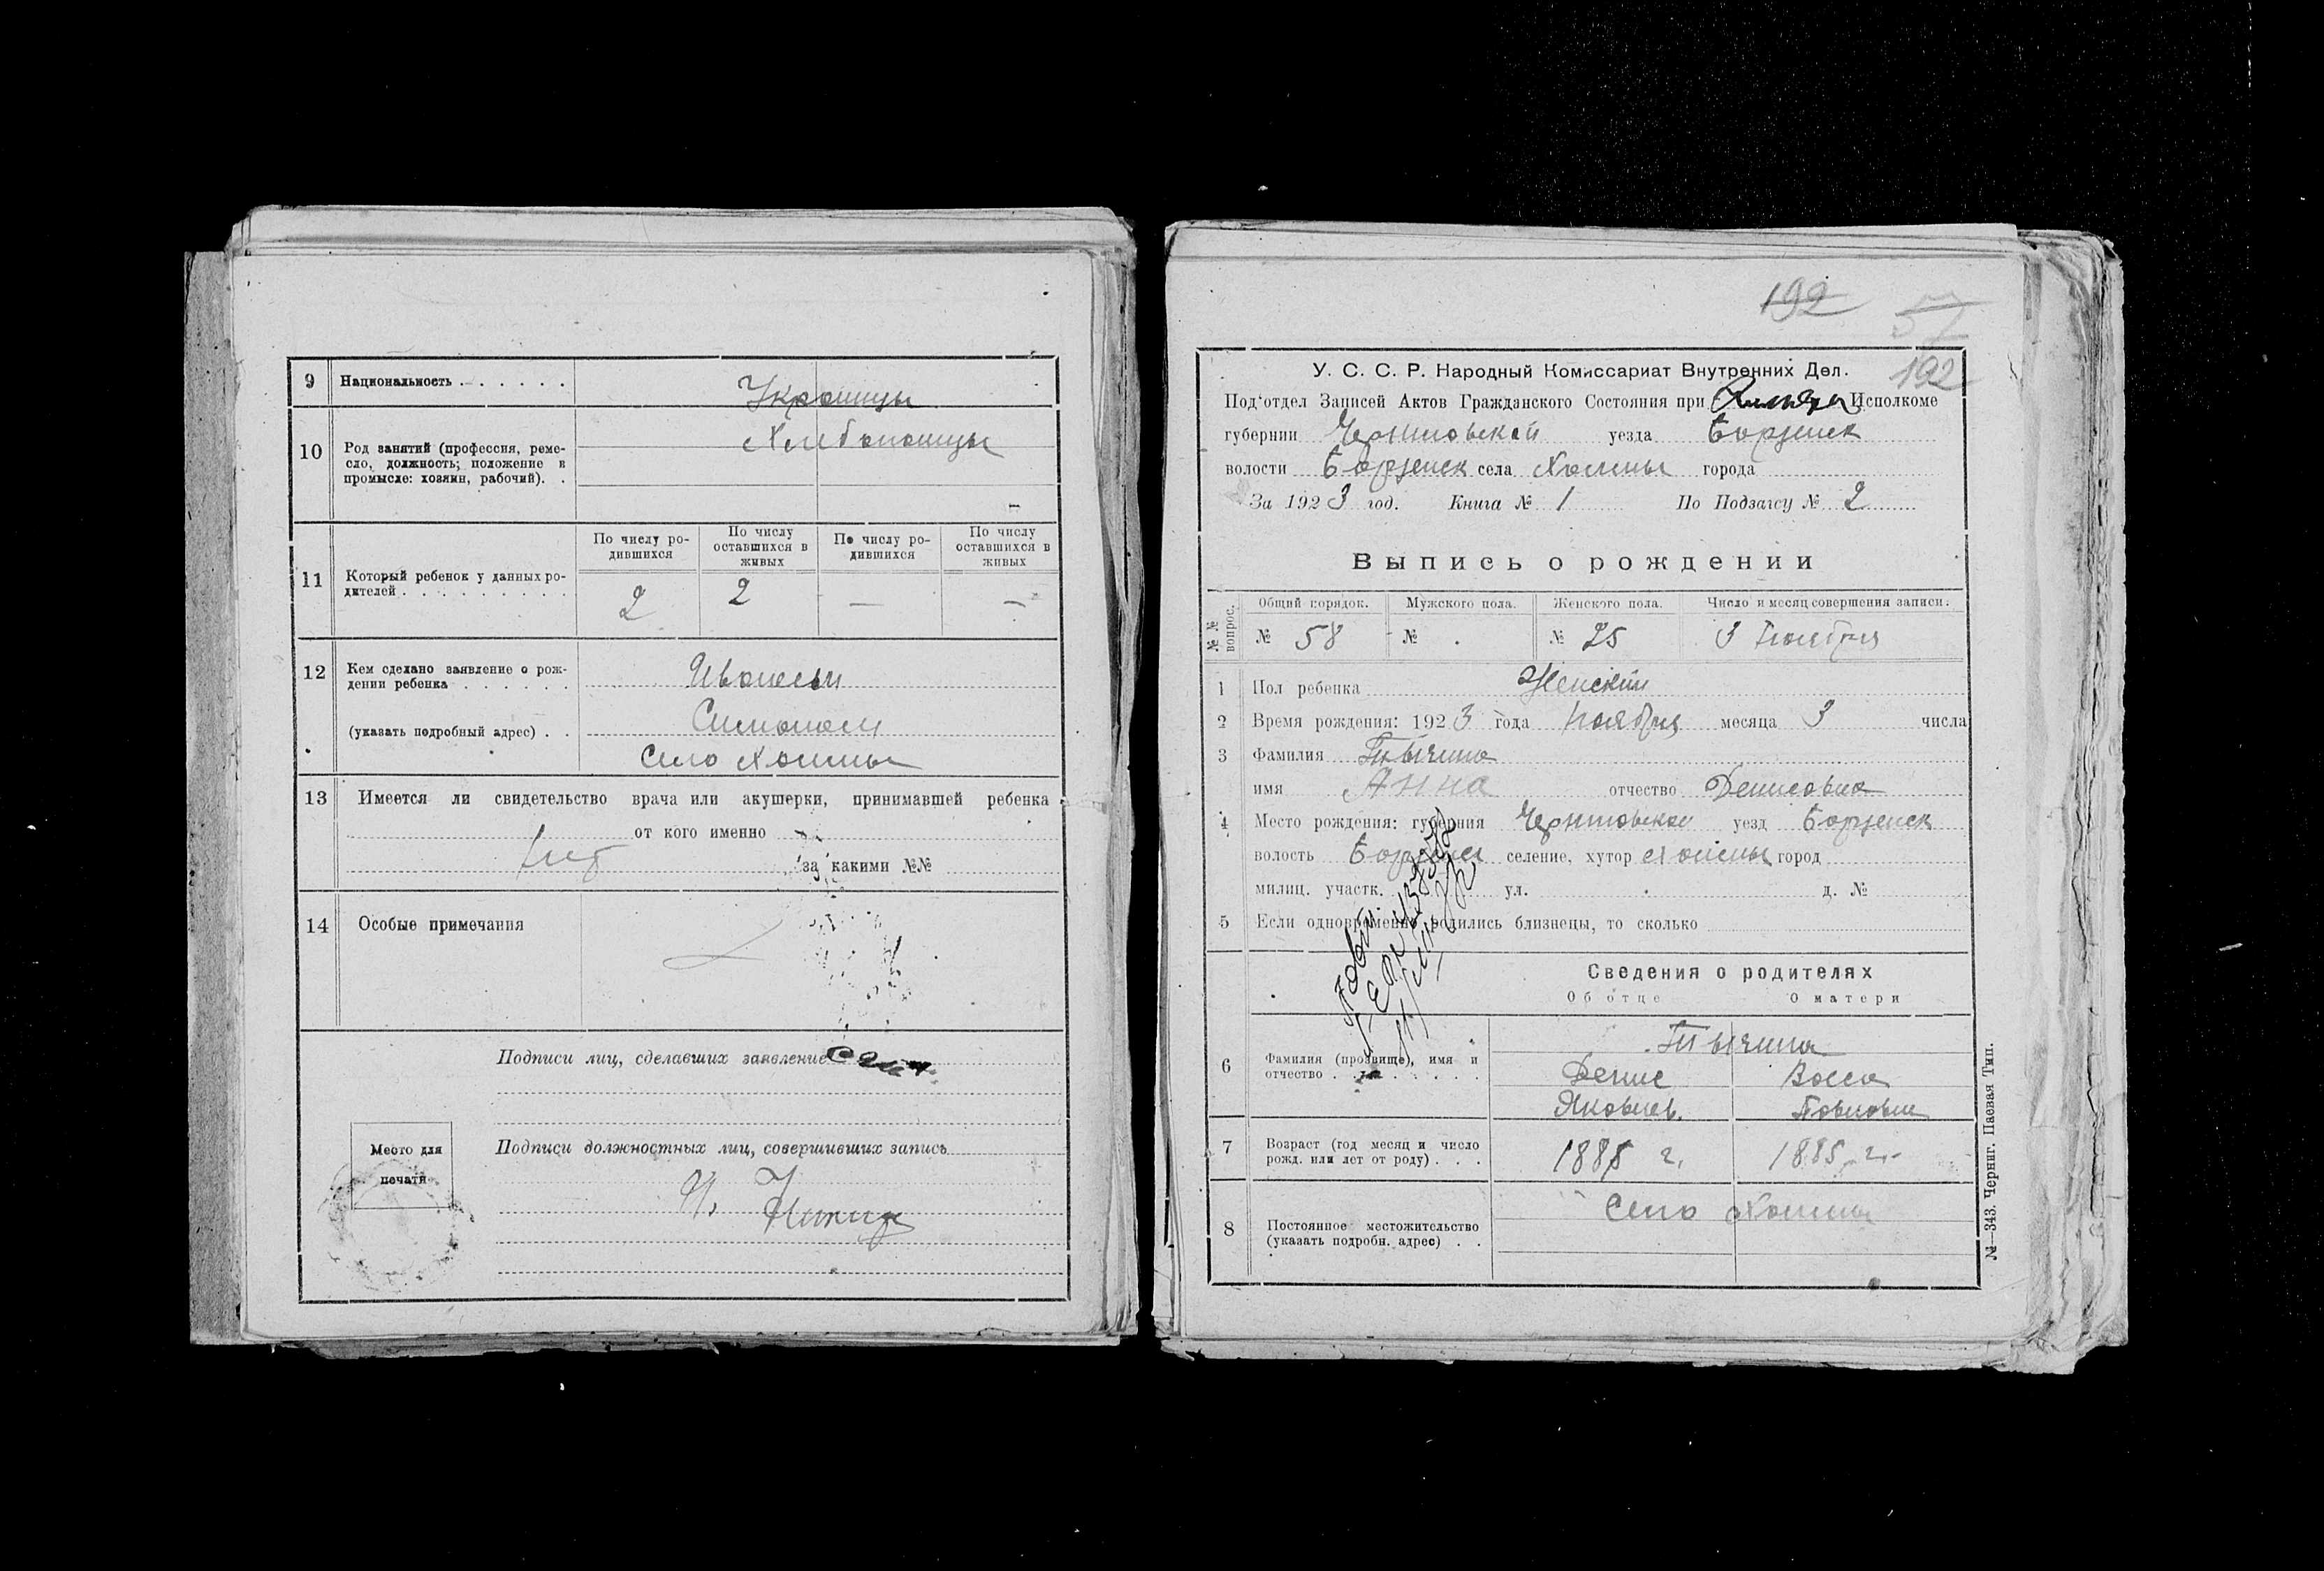 9 Национальность . . . . . . Украинцы
10 Род занятий (профессия, реме-
сло, должность; положение в
промысле: хозяин, рабочий). .
Хлебопашцы
11 Который ребенок у данных ро-
дителей . . . . . . . . .
По числу ро-
дившихся
По числу
оставшихся в
живых
По числу ро-
дившихся
По числу
оставшихся в
живых
2 2 — —
12 Кем сделано заявление о рож-
дении ребенка . . . . . .
(указать подробный адрес) . .
Село Холмы
13 Имеется ли свидетельство врача или акушерки, принимавшей ребенка
от кого именно
нет за какими №№
14 Особые примечания
Подписи лиц, сделавших заявление
Подписи должностных лиц, совершивших запись
Место для
печати
192 57
192
У. С. С. Р. Народный Комиссариат Внутренних Дел.
Под'отдел Записей Актов Гражданского Состояния при Исполкоме
губернии Черниговской уезда Борзенск
волости Борзенск села Холмы города
За 1923 год. Книга № 1 По Подзагсу № 2
Выпись о рождении
№ № вопрос.
Общий порядок. Мужского пола. Женского пола. Число и месяц совершения записи.
№ 58 № № 25 3 Ноября
1 Пол ребенка Женский
2 Время рождения: 1923 года Ноября месяца 3 числа
3 Фамилия Тычина
имя Анна отчество Денисовна
4 Место рождения: губерния Черниговской уезд Борзенск
волость Борзенск селение, хутор Холмы город
милиц. участк. ул. д. №
5 Если одновременно родились близнецы, то сколько
Сведения о родителях
Об отце О матери
6 Фамилия (прозвище), имя и
отчество . . . . . . . .
Тычина
Денис Васса
Яковлев.
7 Возраст (год месяц и число
рожд. или лет от роду) . . .
1885 г. 1885 г.
8 Постоянное местожительство
(указать подробн. адрес) . .
Село Холмы
№—343. Черниг. Паевая Тип.